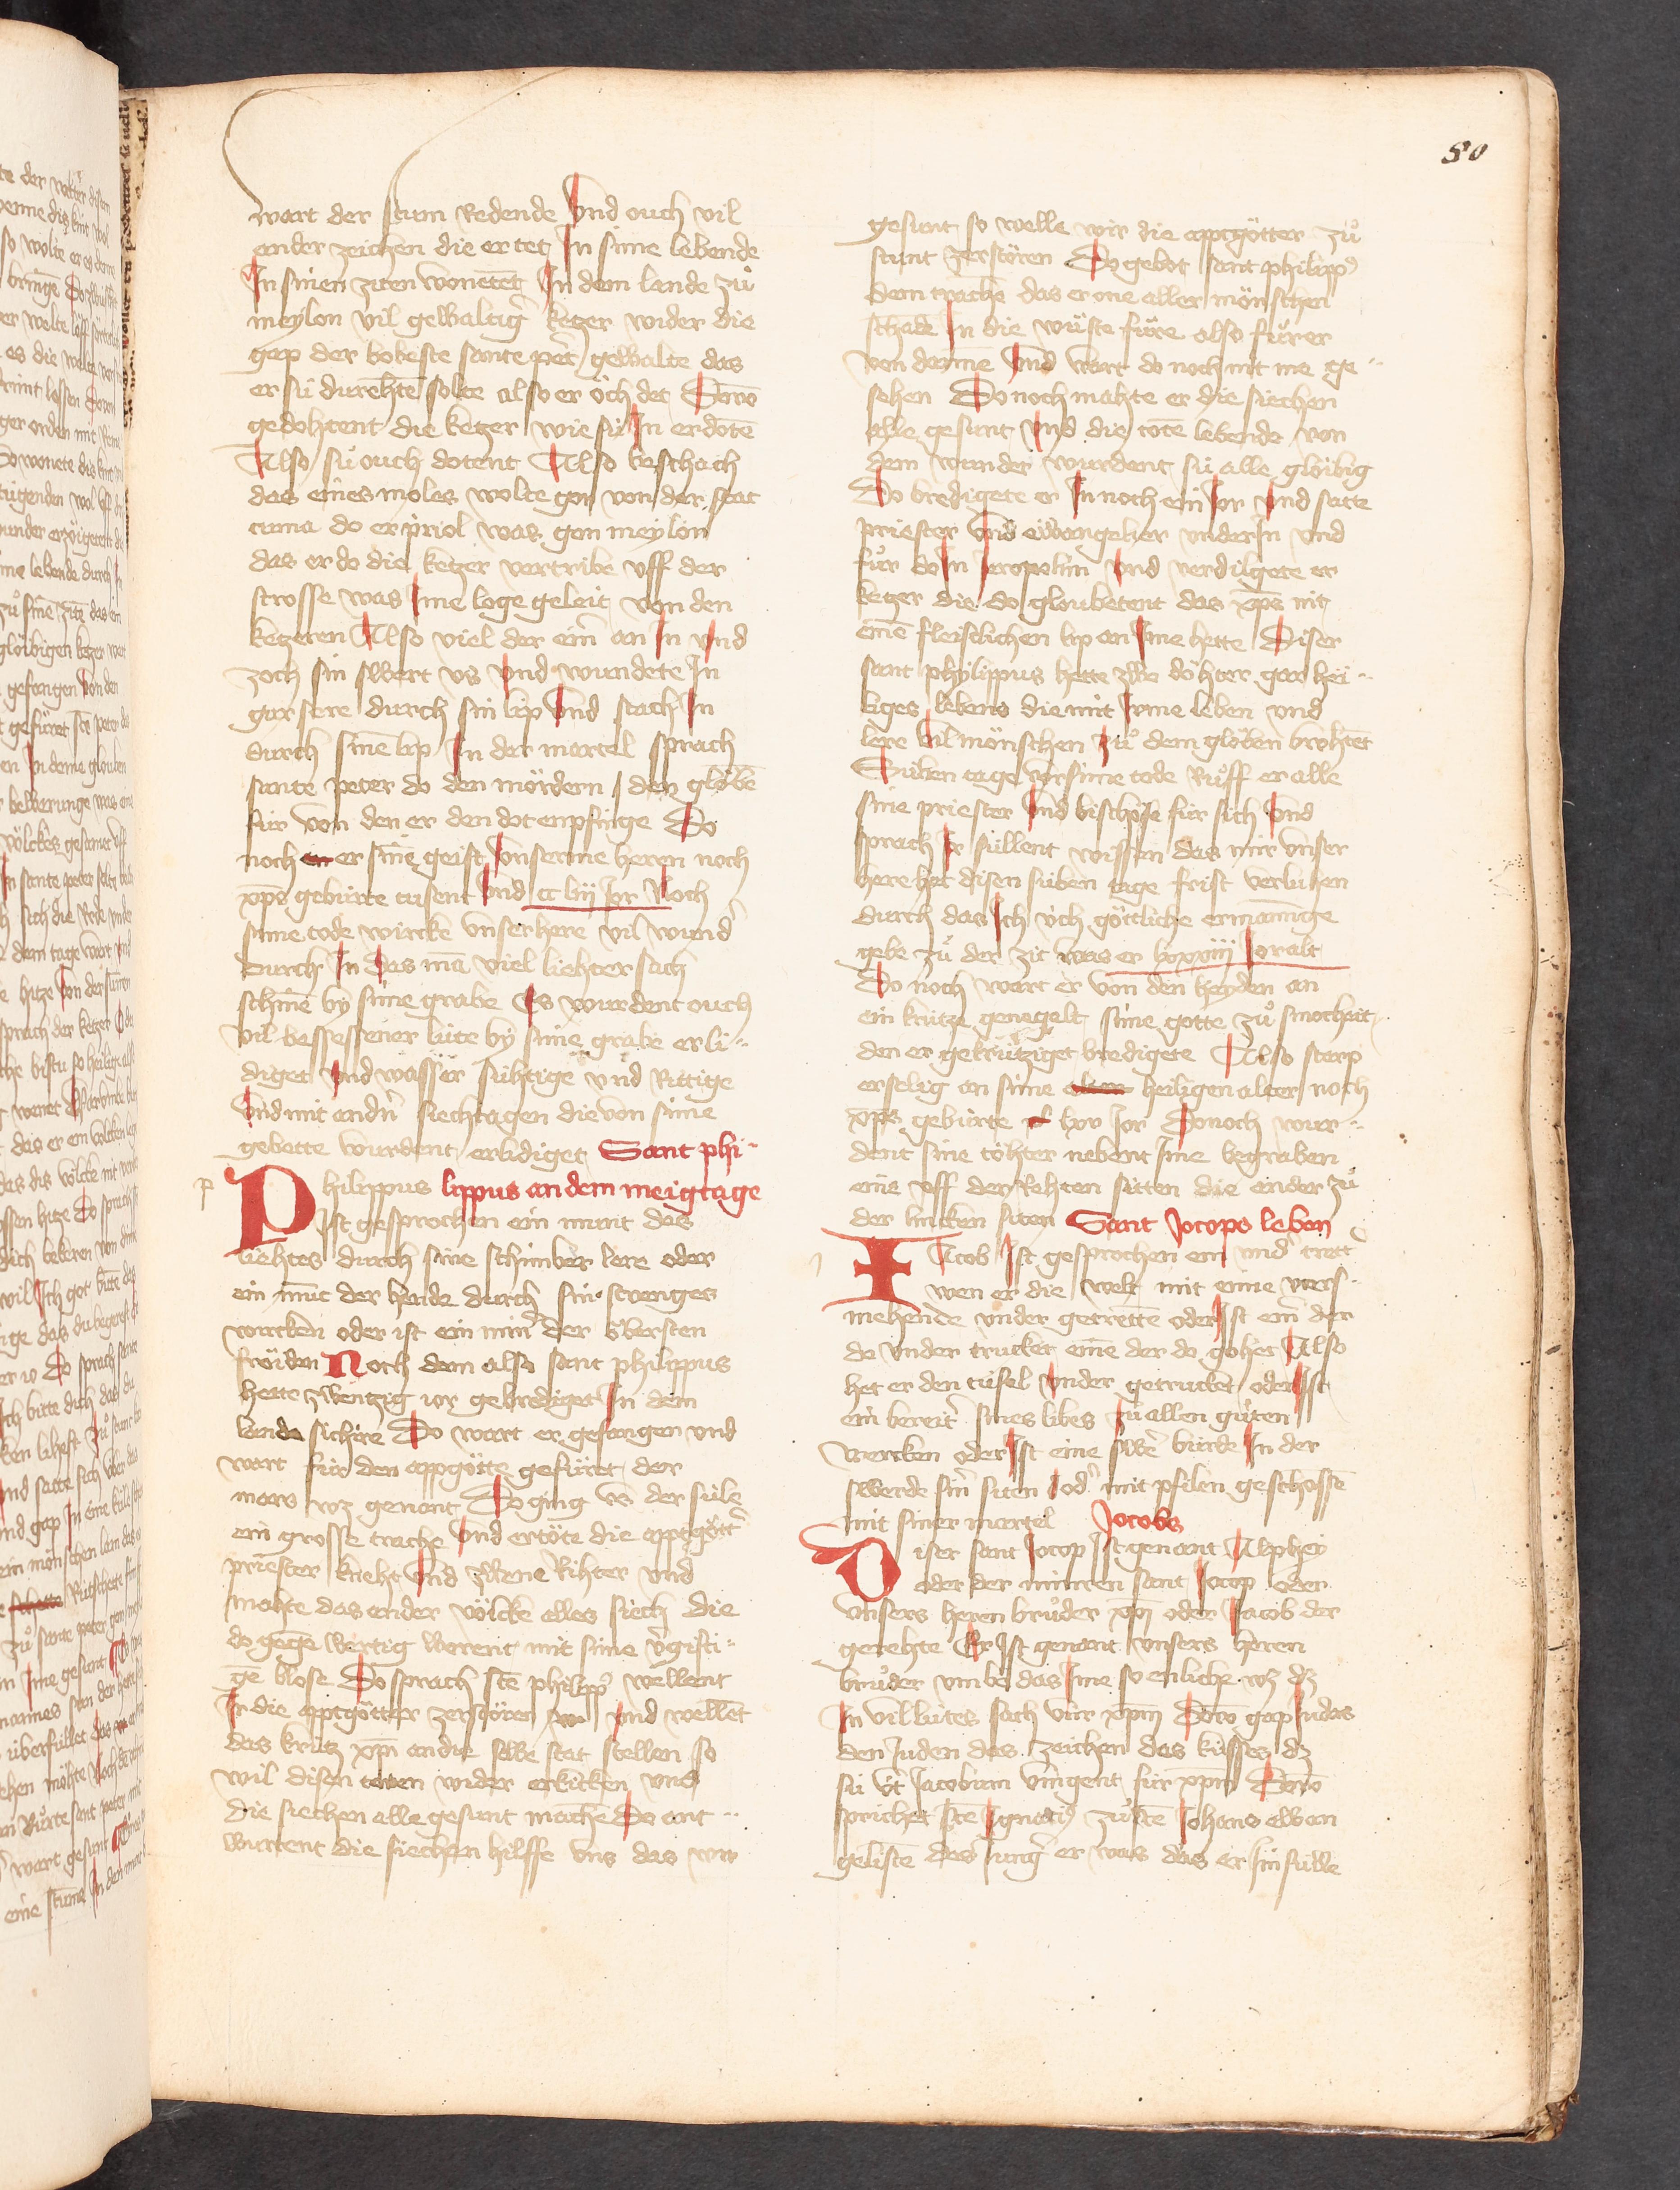 80
wart der stum Redende Vnd ouch vil
ander zeichen die er tet In sime lebende
In sinen ziten wonetēt In dem lande zů
meylon vil gewaltig̾ ketzer wider die
gap der bobeste sante pet̾ gewalte das
er sü durehtē solte also er öch det Doro
gedohtent die ketzer wie sü In erdotē
Also sü ouch dotent Also beschach
das eines moles wolte gon von der stat
cuma do er priol was gon meylon
das er do die ketzer vertribe vff der
strosse was Ime loge geleit von den
ketzeren Also viel der ein̄ an In vnd
zoch sin swert vs vnd wundete In
gar sere durch sin lip Vnd stach In
durch sinē lip In der martel sprach
sante peter do den mördern / den glöbē
für von den er den dot enpfinge Do
noch er sinē geist Vnserme heren noch
xp̄s gebürte tusent Vnd cc liij Jor Noch
sime tode wirckē vnser here vil wund̾
durch In das mā viel liehter sach
schinē by sime grabe Es wurdent ouch
vil bessessener lüte by sime grabe erli-
diget vnd wasser sühtige vnd Rittige
Vnd mit andn̄ siechtagen die von sime
gebette wurdent erlidiget Sant phi-
Philippus lippus an dem meigtage
p
Ist gesprochen ein munt das
liehtes durch sine schinber lere oder
ein mūt der hende durch sin strenges
wurcken oder ist ein min̄ der öbersten
fröiden Noch dem also sant philippus
hette zwentzig ior gebrediget In dem
lande sichire Do wart er gefangen vnd
wart für den appgötte gefüret der
mars wz genant Do ging vs der süle
ein grosse trache Vnd ertöte die apptgött̾
priester kneht Vnd zwene Rihter vnd
mahte das ander völcke alles siech die
do gegē wertig werent mit sime v̾gifti-
gē blose Do sprach stē philipp̾ wellent
Ir die apptgötter zerstören vnd wellēt
das krütz xp̄n an die selbe stat stellen so
wil disen toten wider erkicken vnd
die siechen alle gesunt machē Do ant-
wurtent die siechen hilffe vns das wir
gesunt so welle wir die apptgötter zů
stunt zerstören Do gebot sant philipp̾
dem trachē das er one aller mönschen
schade In die wüste füre also für er
von dannē Vnd wart do noch nit me ge-
sehen Do noch mahte er die siechen
alle gesunt vnd die totē lebende von
dem wunder wurdent sü alle glöibig
Do bredigete er In noch ein Jor Vnd satte
priester Vnd ewangelier vnder In vnd
für do In Jeropolim Vnd verdilgete er
ketzer die do gloubetent das xp̄s nit
einē fleischlichen lip an Ime hette Diser
sant phylippus hette zwo döhter gar hei-
liges lebens die mit Irme leben vnd
lere vil mönschen zů dem glöben brohtēt
Süben tage vor sime tode Růff er alle
sine priester Vnd bischofe für sich Vnd
sprach Ir süllent wissen das mir vnser
here het disen süben tage frist verluhen
durch das Ich v́ch göttliche ermanunge
gebe zů der zit was er lxxxiij Jor alt
Do noch wart er von den heyden an
ein krütze genagelt sime gotte zů smocheit
den er gekrütziget bredigete Also starp
er selig an sime heiligen alter noch
xp̄s gebürte lxv Jor Donoch wur-
dent sine töhter nebent Ime begraben
eine vff der Rehten sitten die ander zů
der lincken siten Sant Jocops leben
Jacob Ist gesprochen ein vnd̾ trett
wen er die welt mit eime vers-
mehende vnder gerrettē oder Ist ein̄ der
do vnder trucket einē der do gohet Also
het er den tüfel vnder getrucket oder Ist
ein bereit̾ sines libes zů allen gůten
wercken oder Ist eine swē bürde In der
swerde sin̄ siten / od̾ mit pfilen geschossē
mit siner martel Jacobs
Diser sant Jocop Ist genant Alphey
oder der minren sant Jocop oder
vnsers heren brůder xp̄i oder Jacob der
gerehte Er Ist genant vnsers heren
brůder vmbe das Ime so enliche wz dz
In vil lütes sach vür xp̄m Doro gap Judas
den Juden das zeichen das küsses dz
sü üt Jacobum v̾ingent für xp̄m Doro
sprichet stē Ignati9 zů stē Johans ewan
gelistē das Jung̾ er was das er Im sulle